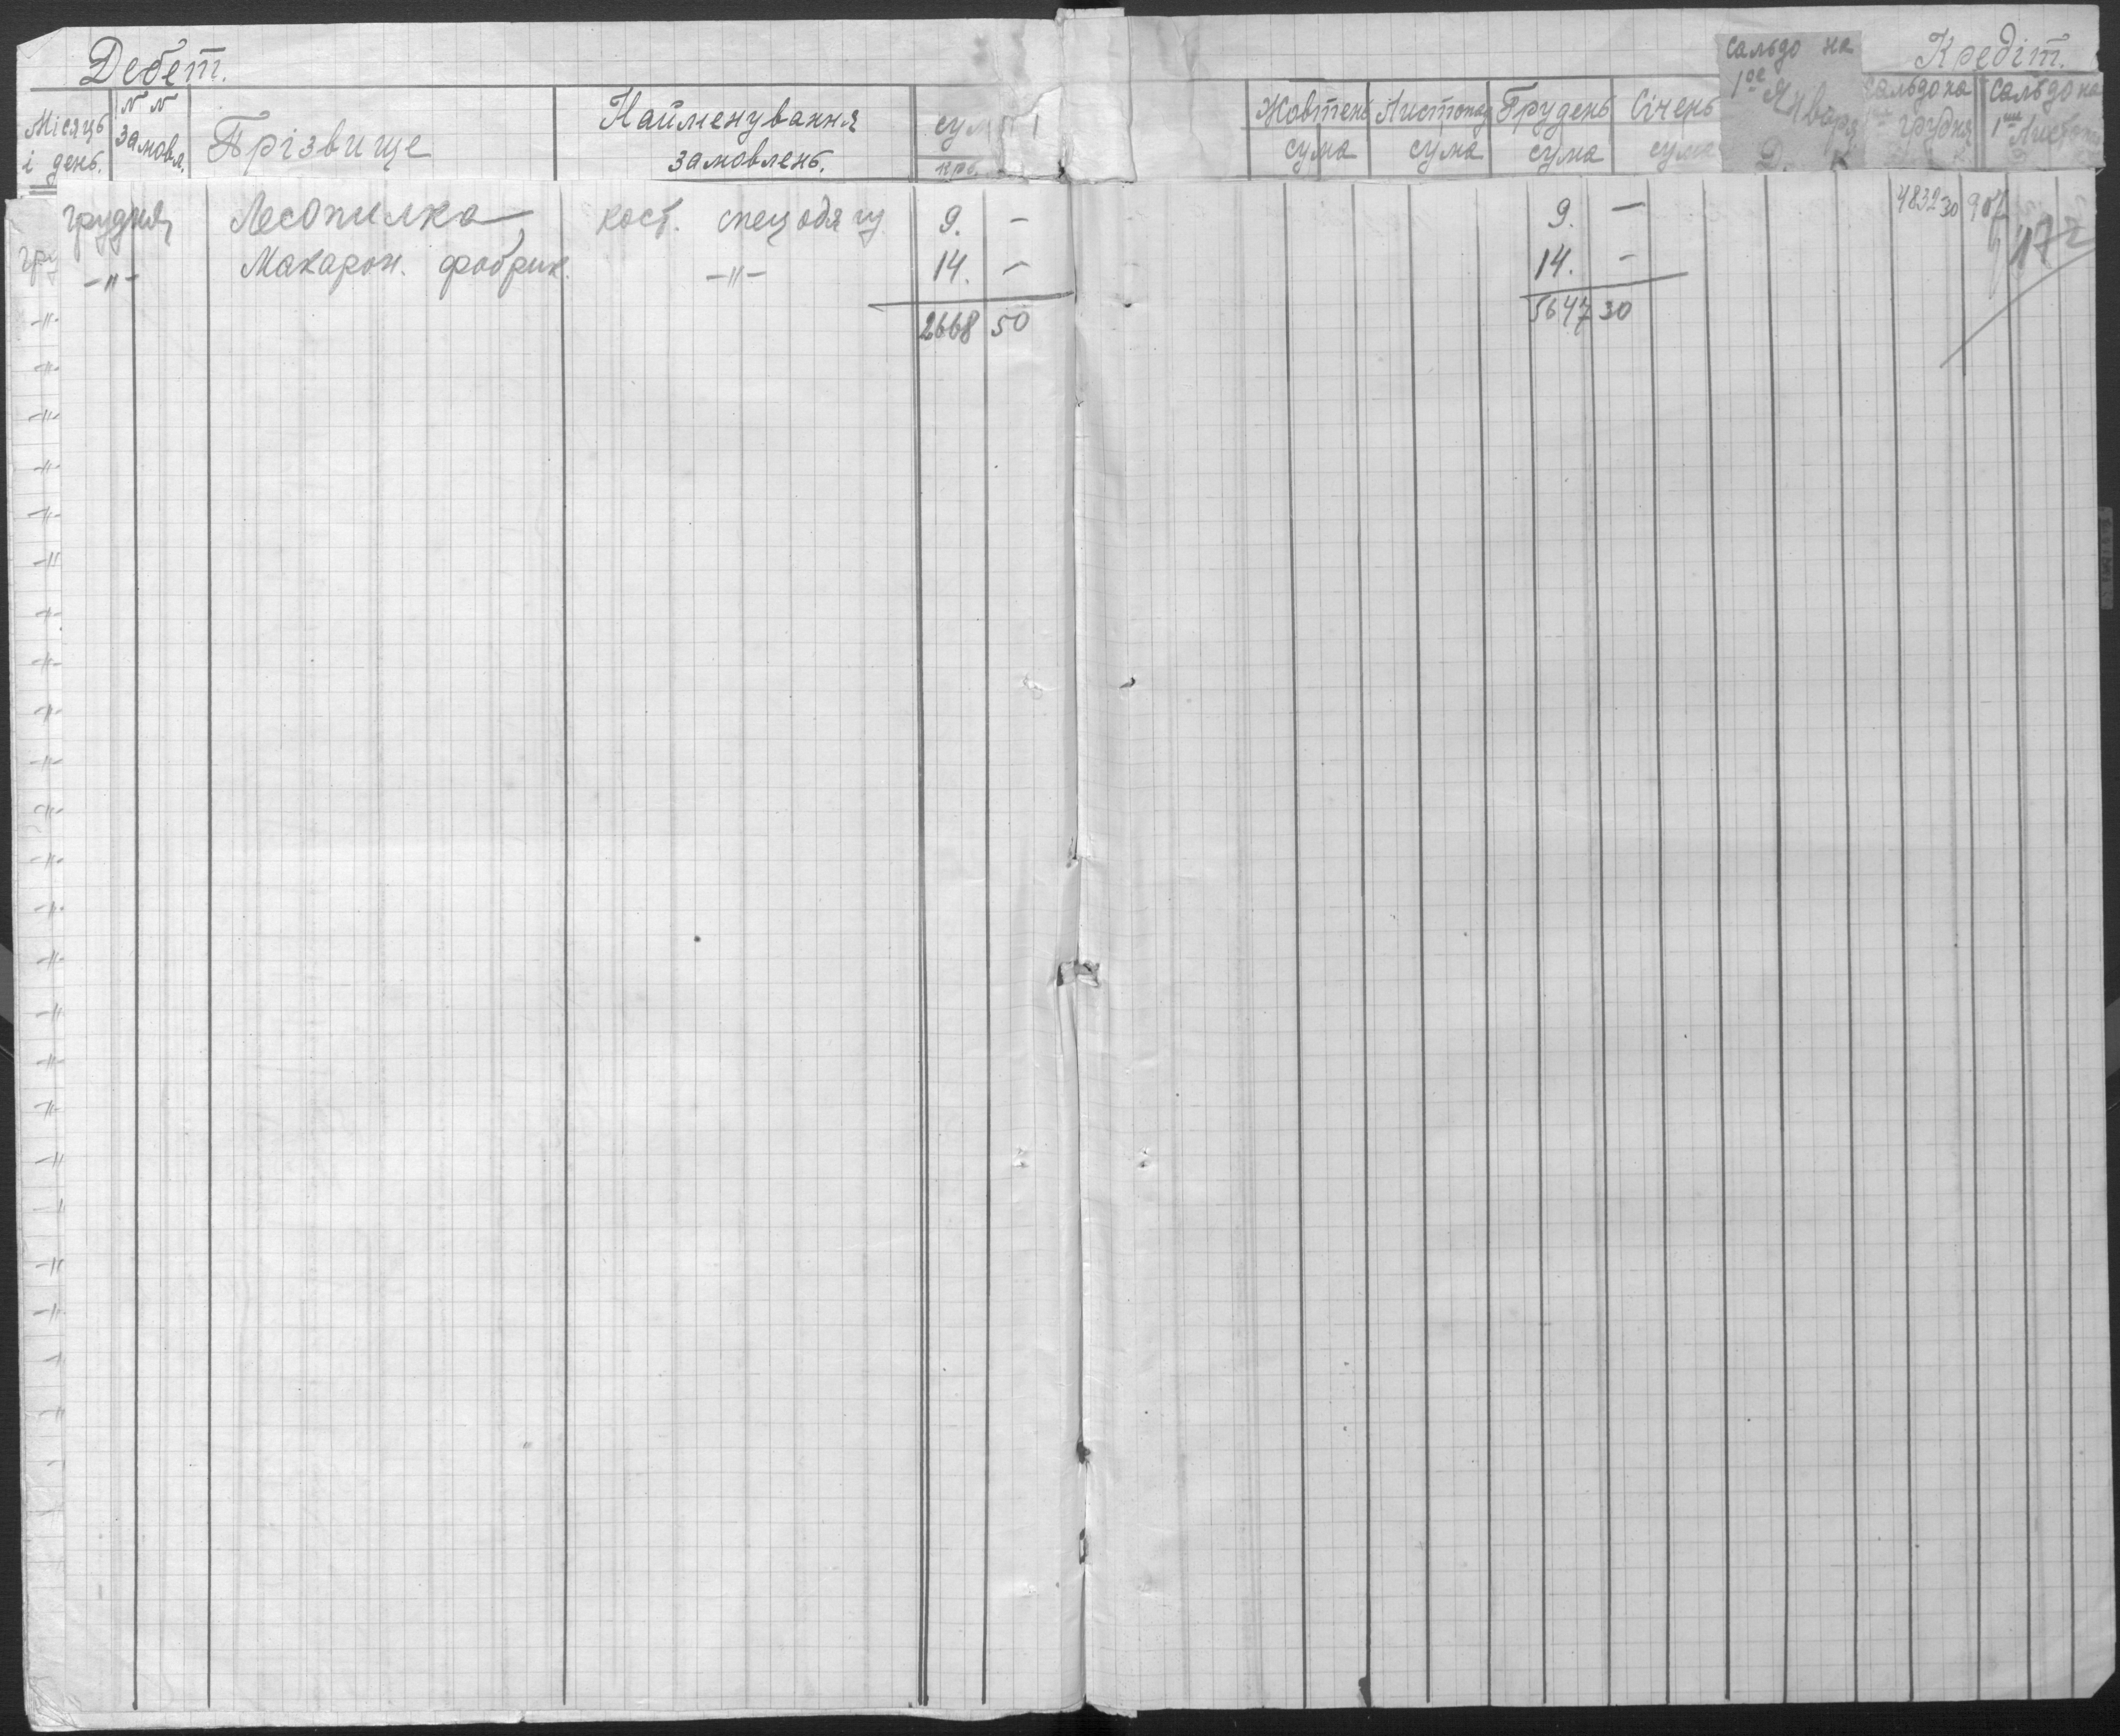 Дебет.
Кредіт.
Місяць і день.
N N замовл.
Прізвище
Найменування замовлень.
сума
крб.
Жовтень сума
Листопад сума
Грудень сума
Січень сума
Сальдо на 1ое Января
Сальдо на грудня
Сальдо на 1ше Листопа
грудня Лесопилка кост. спецодягу 9. – 9. – 4832 30 907
–"– Макарон. фабрик. –"– 14. – 14. – 172
2668 50 5647 30